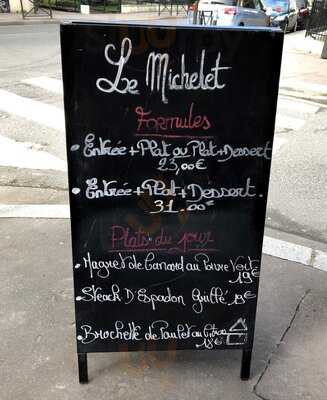 Le Michelet
Formules
• Entrée + Plat ou Plat + Dessert
23,00€
• Entrée + Plat + Dessert.
31.00€
Plats du jour
• Magret de Canard au Poivre Vert
19€
• Steack D'Espadon Grillé 19€
• Brochette de Poulet au Citron
18€